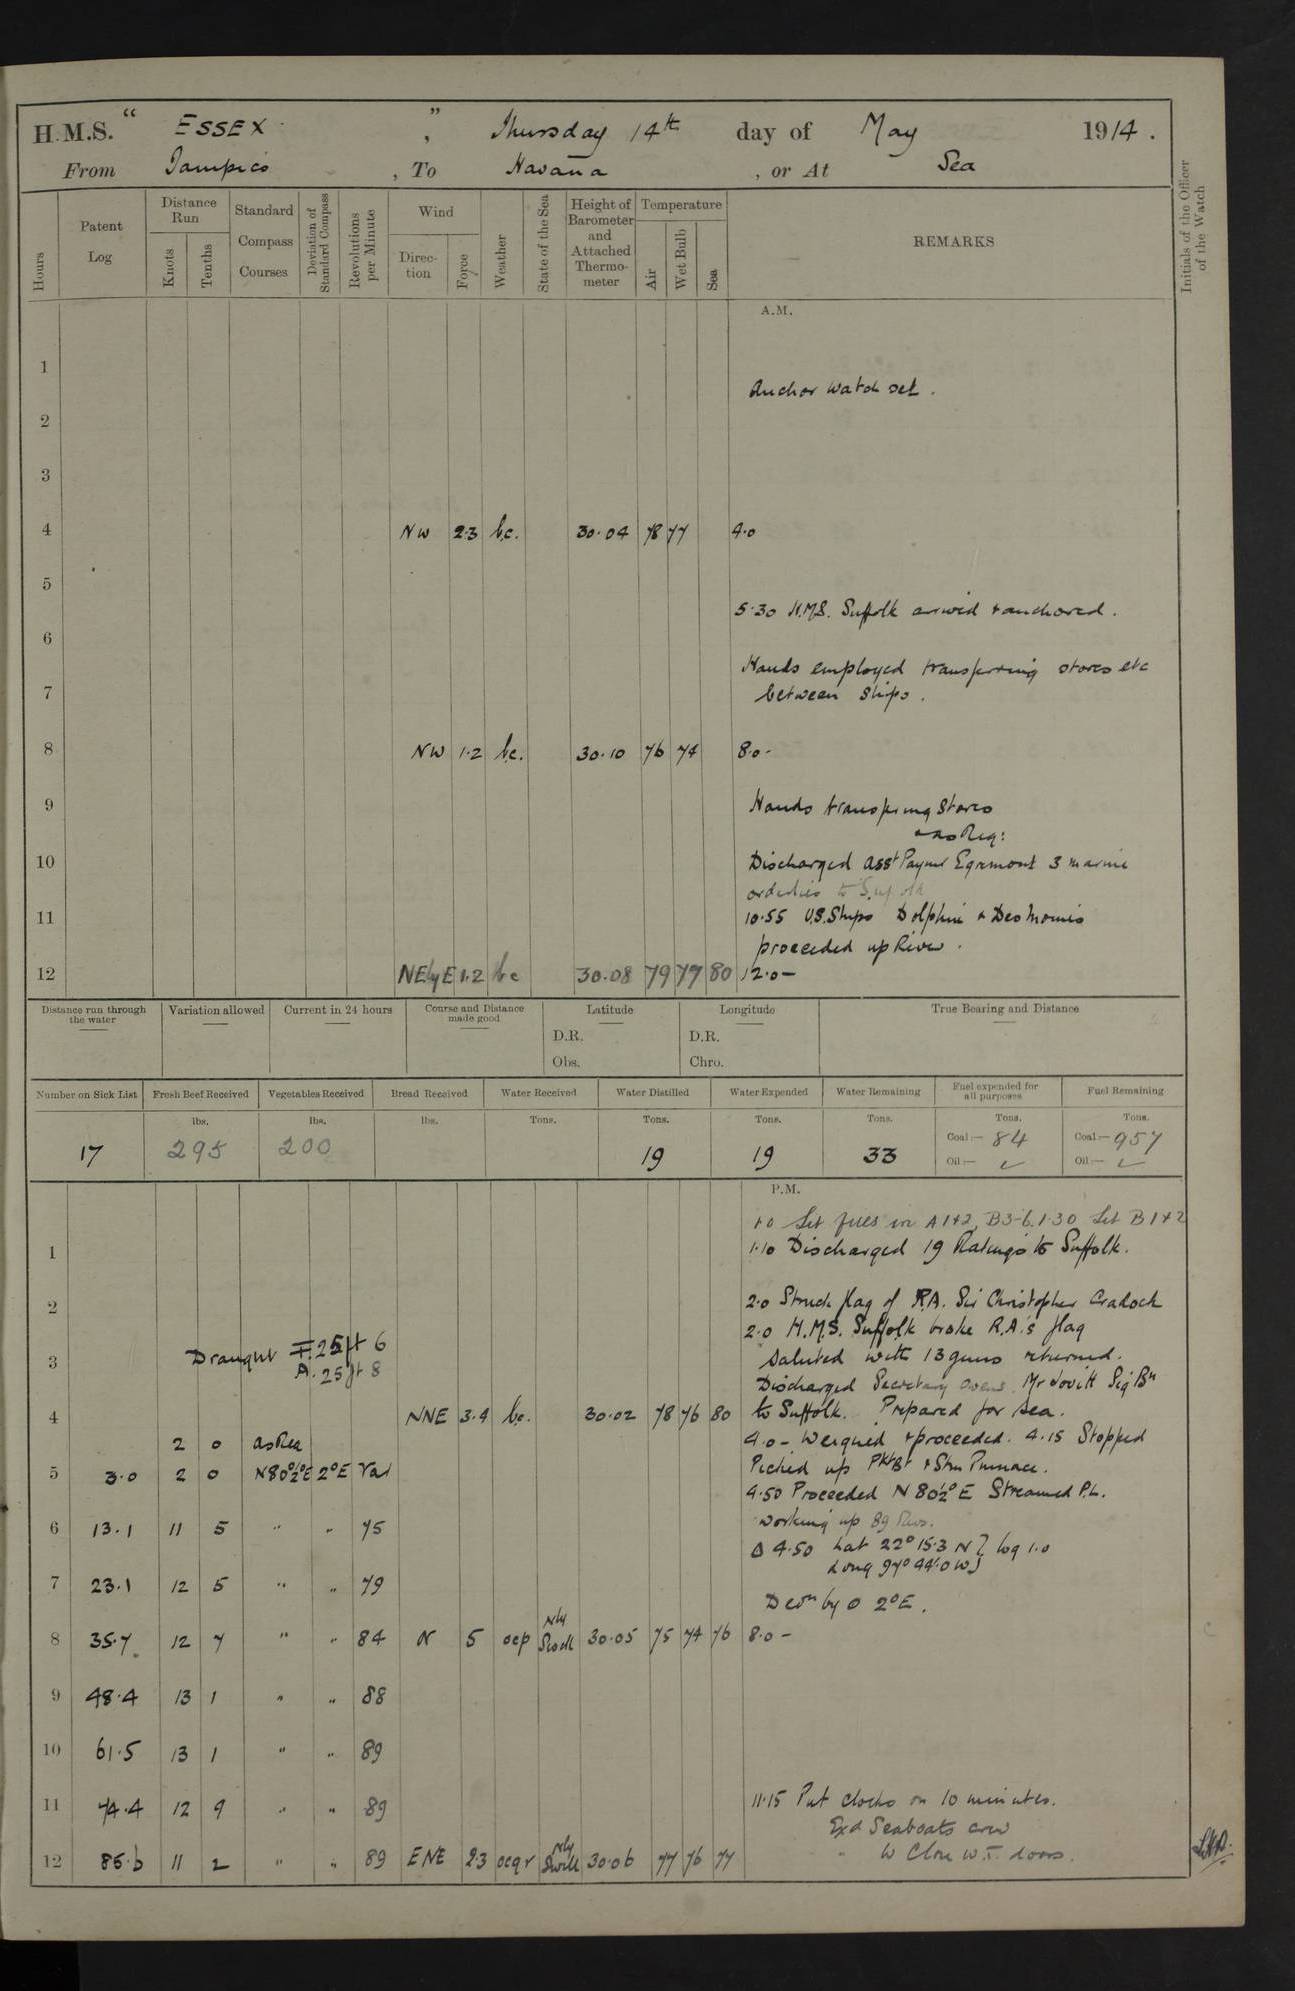 H.M.S. " ESSEX " , Thursday 14th day of May 1914.
From Tampico , To Havana , or At Sea
Hours
Patent Log
Distance Run
Knots
Tenths
Standard Compass Courses
Deviation of Standard Compass
Revolutions per Minute
Wind
Direction
Force
Weather
State of the Sea
Height of Barometer and Attached Thermometer
Temperature
Air
Wet Bulb
Sea
REMARKS
Initials of the Officer of the Watch
A.M.
1
Anchor Watch set.
2
3
4 NW 2.3 b.c. 30.04 78 77 4.0
5
5.30 H.M.S. Suffolk arrived & anchored.
6
Hands employed transferring stores etc
7 between ships.
8 NW 1.2 b.c. 30.10 76 74 8.0-
9 Hands transferring stores
& as Req:
10 Discharged Asst Paymr Egremont 3 marine
orderlies to Suffolk
11 10.55 U.S. Ships Dolphin & Des Moines
proceeded up River.
12 NEbyE 1.2 bc 30.08 79 77 80 12.0-
Distance run through the water
Variation allowed
Current in 24 hours
Course and Distance made good
Latitude
D.R.
Obs.
Longitude
D.R.
Chro.
True Bearing and Distance
Number on Sick List
Fresh Beef Received
Vegetables Received
Bread Received
Water Received
Water Distilled
Water Expended
Water Remaining
Fuel expended for all purposes
Fuel Remaining
lbs. lbs. lbs. Tons. Tons. Tons. Tons. Tons. Tons.
17 295 200 19 19 33 Coal:— 84 Coal:— 957
Oil:— Oil:—
P.M.
1.0 Lit fires in A1+2, B3-6. 1.30 Lit B1+2
1 1.10 Discharged 19 Ratings to Suffolk.
2 2.0 Struck flag of R.A. Sir Christopher Cradock
2.0 H.M.S. Suffolk broke R.A.'s flag
3 Draught F. 25ft 6 Saluted with 13 guns returned.
A. 25 ft 8 Discharged Secretary Owens Mr Lovitt Sig Bn
4 NNE 3.4 b.c. 30.02 78 76 80 to Suffolk. Prepared for sea.
2 0 as Req 4.0- Weighed & proceeded. 4.15 Stopped
5 3.0 2 0 N80½°E 2°E Var Picked up Pkt Bt & Stm Pinnace.
4.50 Proceeded N 80½° E Streamed P.L.
6 13.1 11 5 " " 75 Working up 89 Revs.
Δ 4.50 Lat 22° 15.3 N } log 1.0
Long 97° 44'.0 W }
7 23.1 12 5 " " 79
Devn by ☉ 2°E.
8 35.7 12 7 " " 84 N 5 ocp Nly Swell 30.05 75 74 76 8.0-
9 48.4 13 1 " " 88
10 61.5 13 1 " " 89
11 74.4 12 9 " " 89 11.15 Put clocks on 10 minutes.
Exd Seaboats crew
12 85.6 11 2 " " 89 ENE 2.3 ocqr Nly Swell 30.06 77 76 77 " to Close W.T. doors.